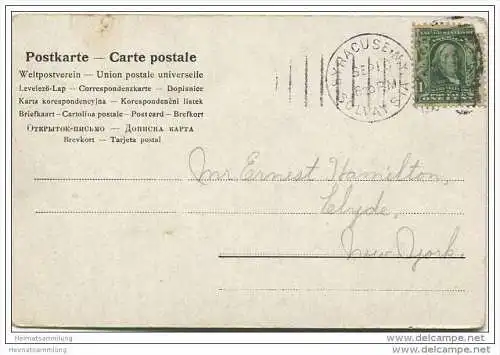 Postkarte — Carte postale
Weltpostverein — Union postale universelle
Levelező-Lap — Correspondenzkarte — Dopisnice
Karta korespondencyjna — Korespondenční lístek
Briefkaart - Cartolina postale - Postcard - Brefkort
Открытое-письмо — Дописна карта
Brevkort — Tarjeta postal
SYRACUSE, N.Y.
SEP 10
SOLVAY STA.
Mr Ernest Hamilton,
Clyde,
New York.
Heimatsammlung
http://www.heimatsammlung.de
Heimatsammlung
http://www.heimatsammlung.de